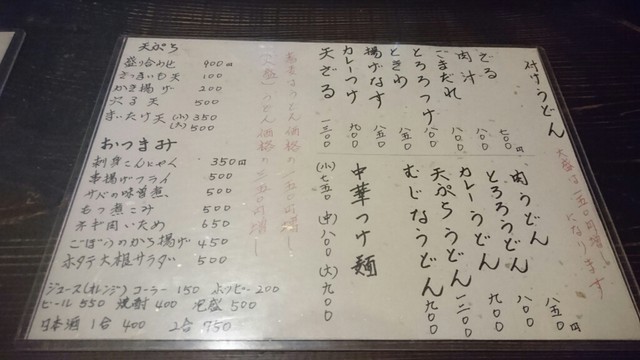 付けうどん
ざる 七〇〇円
肉汁 八〇〇
ごまだれ 八〇〇
とろろつけ 八〇〇
ときわ 八五〇
揚げなす 八五〇
カレーつけ 九〇〇
天ざる 一三〇〇
肉うどん 八五〇円
とろろうどん 八〇〇
カレーうどん 九〇〇
天ぷらうどん 一三〇〇
むじなうどん 九〇〇
中華つけ麺
(小)七五〇 (中)八〇〇 (大)九〇〇
天ぷら
盛り合わせ 900円
さつまいも天 100
かき揚げ 200
穴子天 500
まいたけ天 (小)350
(大)500
おつまみ
刺身こんにゃく 350円
串揚げフライ 500
サバの味噌煮 500
もつ煮こみ 500
ネギ肉いため 650
ごぼうのから揚げ 450
ホタテ大根サラダ 500
ジュース(オレンジ) コーラー 150 ホッピー 200
ビール 550 焼酎 400 泡盛 500
日本酒 1合 400 2合 750